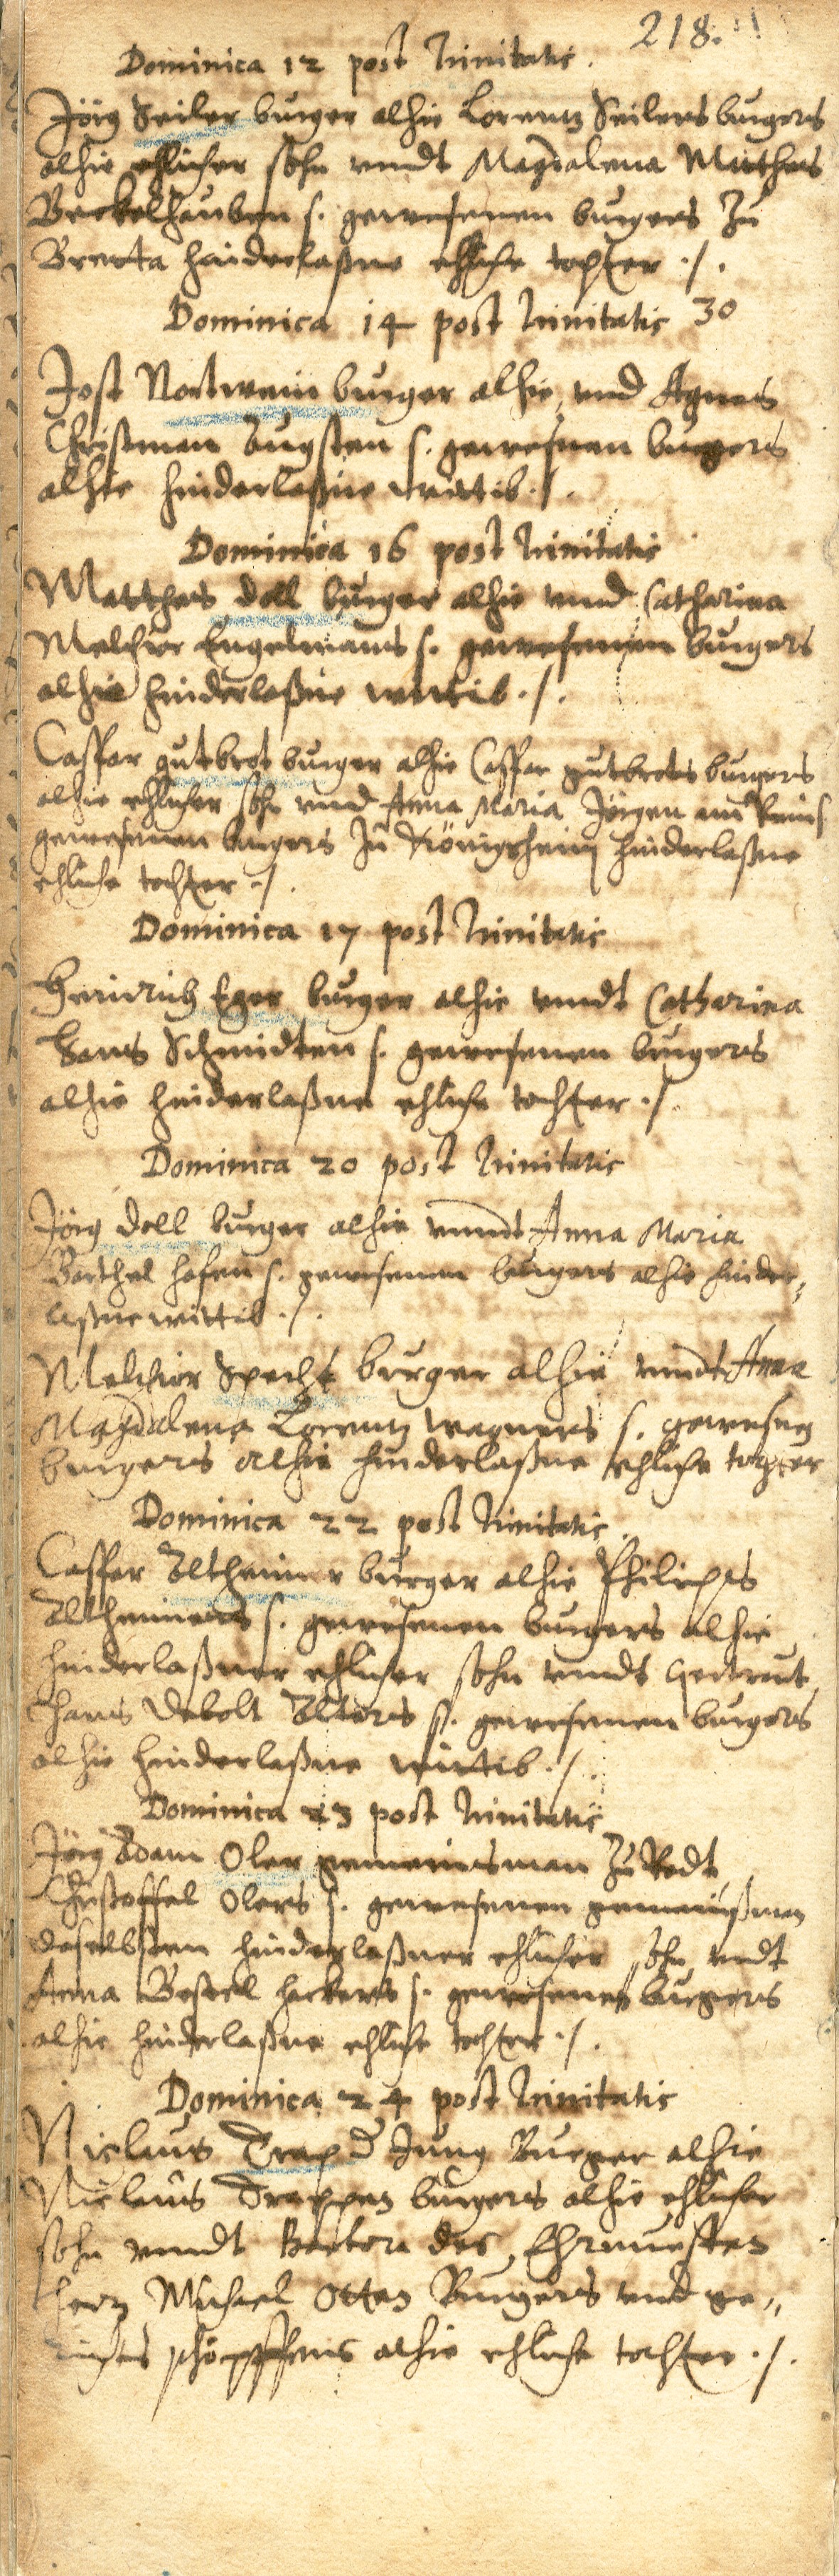 218.
Dominica 12 post Trinitatis.
Jörg Seiler burger alhie Lorentz Seilers burgers
alhie ehlicher sohn vnndt Magdalena Matthes
Beckelhauben s. gewesenen burgers zu
Bretta hinderlaßne ehliche tochter ./.
Dominica 14 post Trinitatis 30
Jost Nortwein burger alhie, vnd Agnes
Christman Augsten s. gewesnen burgers
alhie hinderlaßne wittib ./.
Dominica 16 post Trinitatis
Matthes doll burger alhie vnnd Catharina
Melchior Engelmans s. gewesenen burgers
alhie hinderlaßne wittib ./.
Casper gutbrot burger alhie Casper gutbrots burgers
alhie ehlicher sohn vnd Anna Maria Jörgen am s.
gewesenen burgers zu Königsheim hinderlaßne
ehliche tochter ./.
Dominica 17 post Trinitatis
Heinrich Eger burger alhie vnndt Catharina
Hans Schmidten s. gewesenen burgers
alhie hinderlaßne ehliche tochter ./.
Dominica 20 post Trinitatis
Jörg doll burger alhie vnnd Anna Maria
Barthel hasen s. gewesenen burgers alhie hinder,,
laßne wittib ./.
Melchior Specht burger alhie vnndt Anna
Magdalena Lorentz wagners s. gewesen
burgers alhie hinderlaßne ehliche tochter
Dominica 22 post Trinitatis.
Casper Altheimer burger alhie Philipps
Altheimers s. gewesenen burgers alhie
hinderlaßner ehlicher sohn vnndt Gertraut
hans Debolt s. gewesenen burgers
alhie hinderlaßne wittib ./.
Dominica 23 post Trinitatis
Jörg Adam Oler gemeinsman zu Rodt
Christoffel Olers s. gewesenen gemeinßman
daselbsten hinderlaßner ehlicher sohn vndt
Anna hackers s. gewesenen burgers
alhie hinderlaßne ehliche tochter ./.
Dominica 24 post Trinitatis
Niclaus Trap d Jung Burger alhie
Niclaus Trappen burgers alhie ehlicher
sohn vnndt des Ehrnuesten
herrn Michael Otten Burgers vnd ge,,
richts schöpffens alhie ehliche tochter ./.